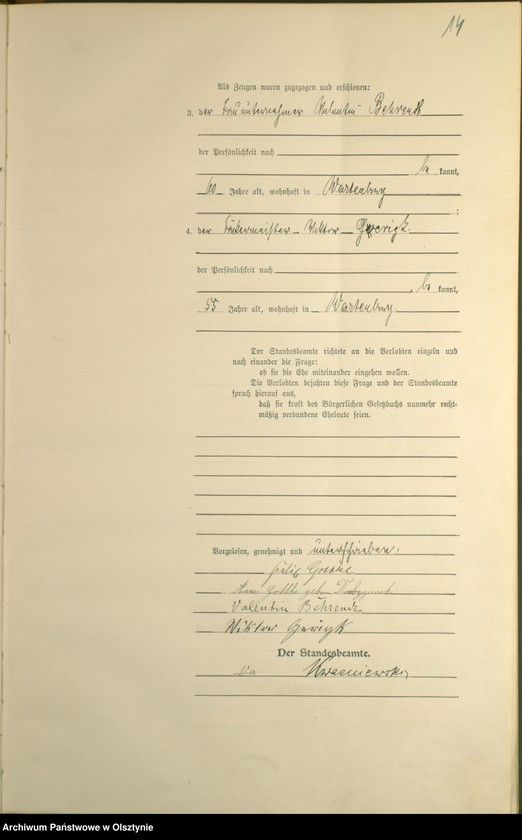 14
Als Zeugen waren zugezogen und erschienen:
3. der Bauunternehmer Valentin Behrendt
der Persönlichkeit nach
be kannt,
60 Jahre alt, wohnhaft in Wartenburg
;
4. der Bäckermeister Viktor Gerigk
der Persönlichkeit nach
, be kannt,
55 Jahre alt, wohnhaft in Wartenburg.
Der Standesbeamte richtete an die Verlobten einzeln und
nach einander die Frage:
ob sie die Ehe miteinander eingehen wollen.
Die Verlobten bejahten diese Frage und der Standesbeamte
sprach hierauf aus,
daß sie kraft des Bürgerlichen Gesetzbuchs nunmehr recht-
mäßig verbundene Eheleute seien.
Vorgelesen, genehmigt und unterschrieben.
geborn
Valentin Behrendt
Viktor Gerigk
Der Standesbeamte.
Kwasniewski
Archiwum Państwowe w Olsztynie